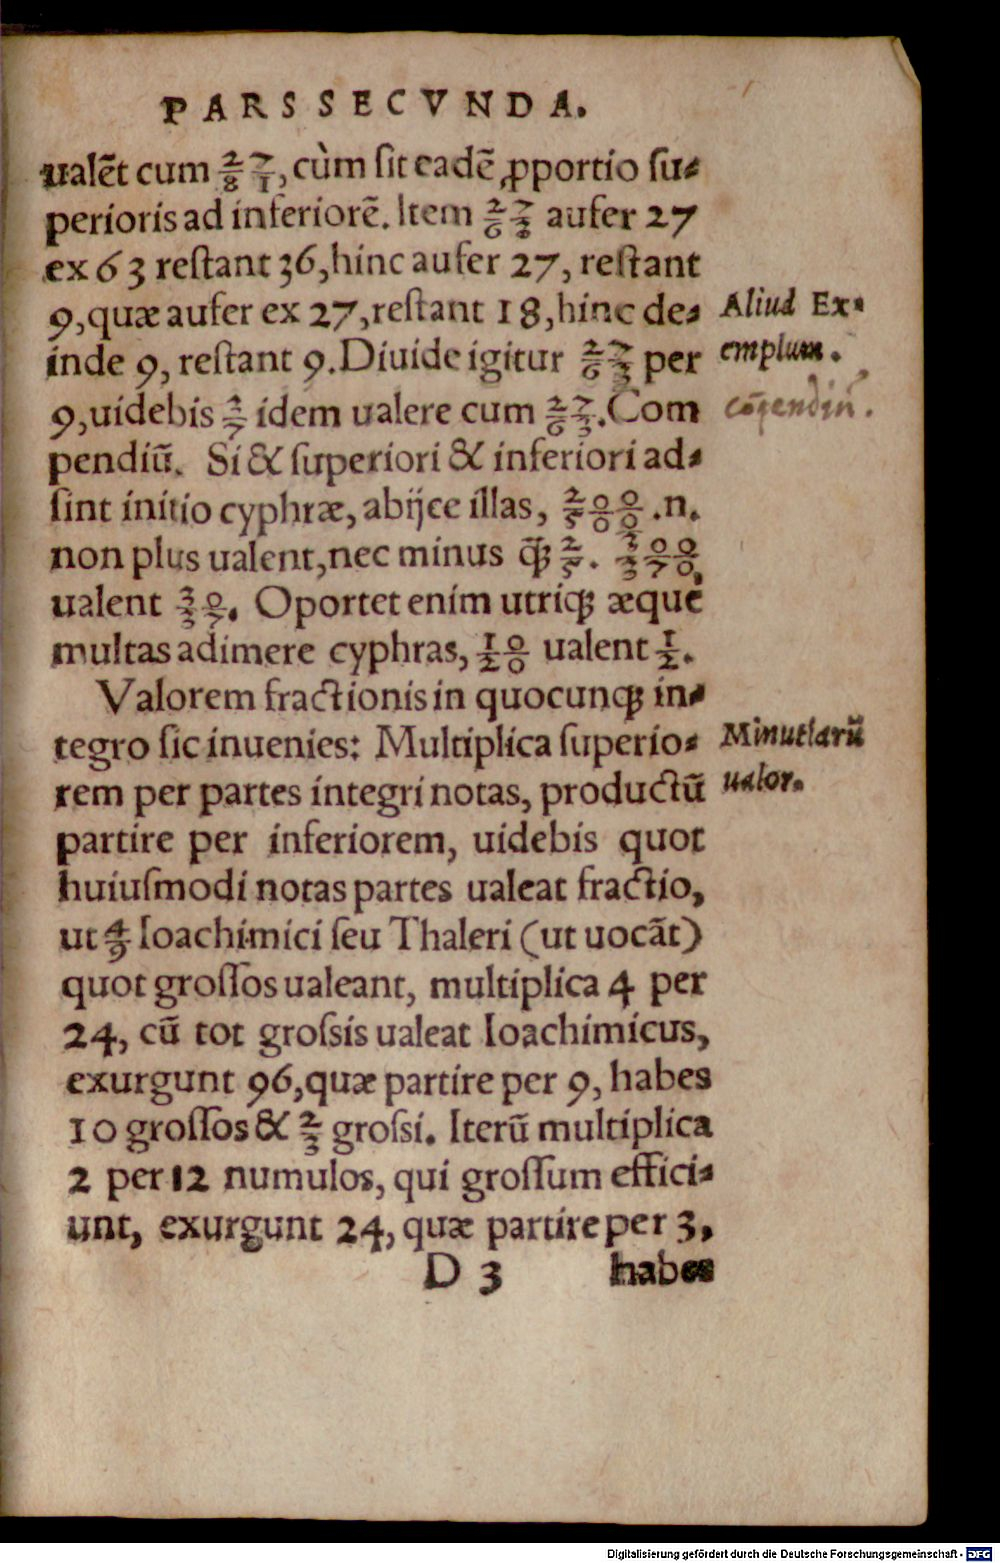 PARS SECVNDA.
ualēt cum 27/81, cùm sit eadē ꝓportio su⸗
perioris ad inferiorē. Item 27/63 aufer 27
ex 63 restant 36, hinc aufer 27, restant
9, quæ aufer ex 27, restant 18, hinc de⸗
Aliud Ex⸗
inde 9, restant 9. Diuide igitur 27/63 per
emplum.
9, uidebis 3/7 idem ualere cum 27/63. Com
pendiū. Si & superiori & inferiori ad⸗
sint initio cyphræ, abijce illas, 200/500 .n.
non plus ualent, nec minus q̃ꝫ 2/5. 300/370,
ualent 30/37. Oportet enim utriqꝫ æque
multas adimere cyphras, 10/20 ualent 1/2.
Valorem fractionis in quocunqꝫ in⸗
tegro sic inuenies: Multiplica superio⸗
Minutiarū
rem per partes integri notas, productū
ualor.
partire per inferiorem, uidebis quot
huiusmodi notas partes ualeat fractio,
ut 4/9 Ioachimici seu Thaleri (ut uocāt)
quot grossos ualeant, multiplica 4 per
24, cū tot grossis ualeat Ioachimicus,
exurgunt 96, quæ partire per 9, habes
10 grossos & 2/3 grossi. Iterū multiplica
2 per 12 numulos, qui grossum effici⸗
unt, exurgunt 24, quæ partire per 3,
D 3 habes
Digitalisierung gefördert durch die Deutsche Forschungsgemeinschaft - DFG